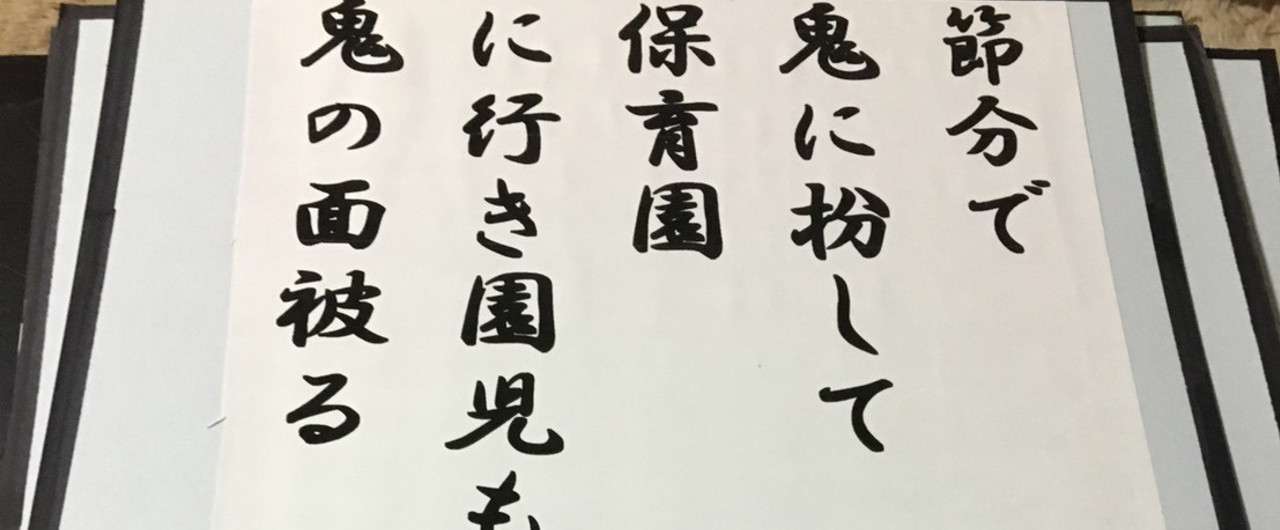 節分で
鬼に扮して
保育園
に行き園児も
鬼の面被る